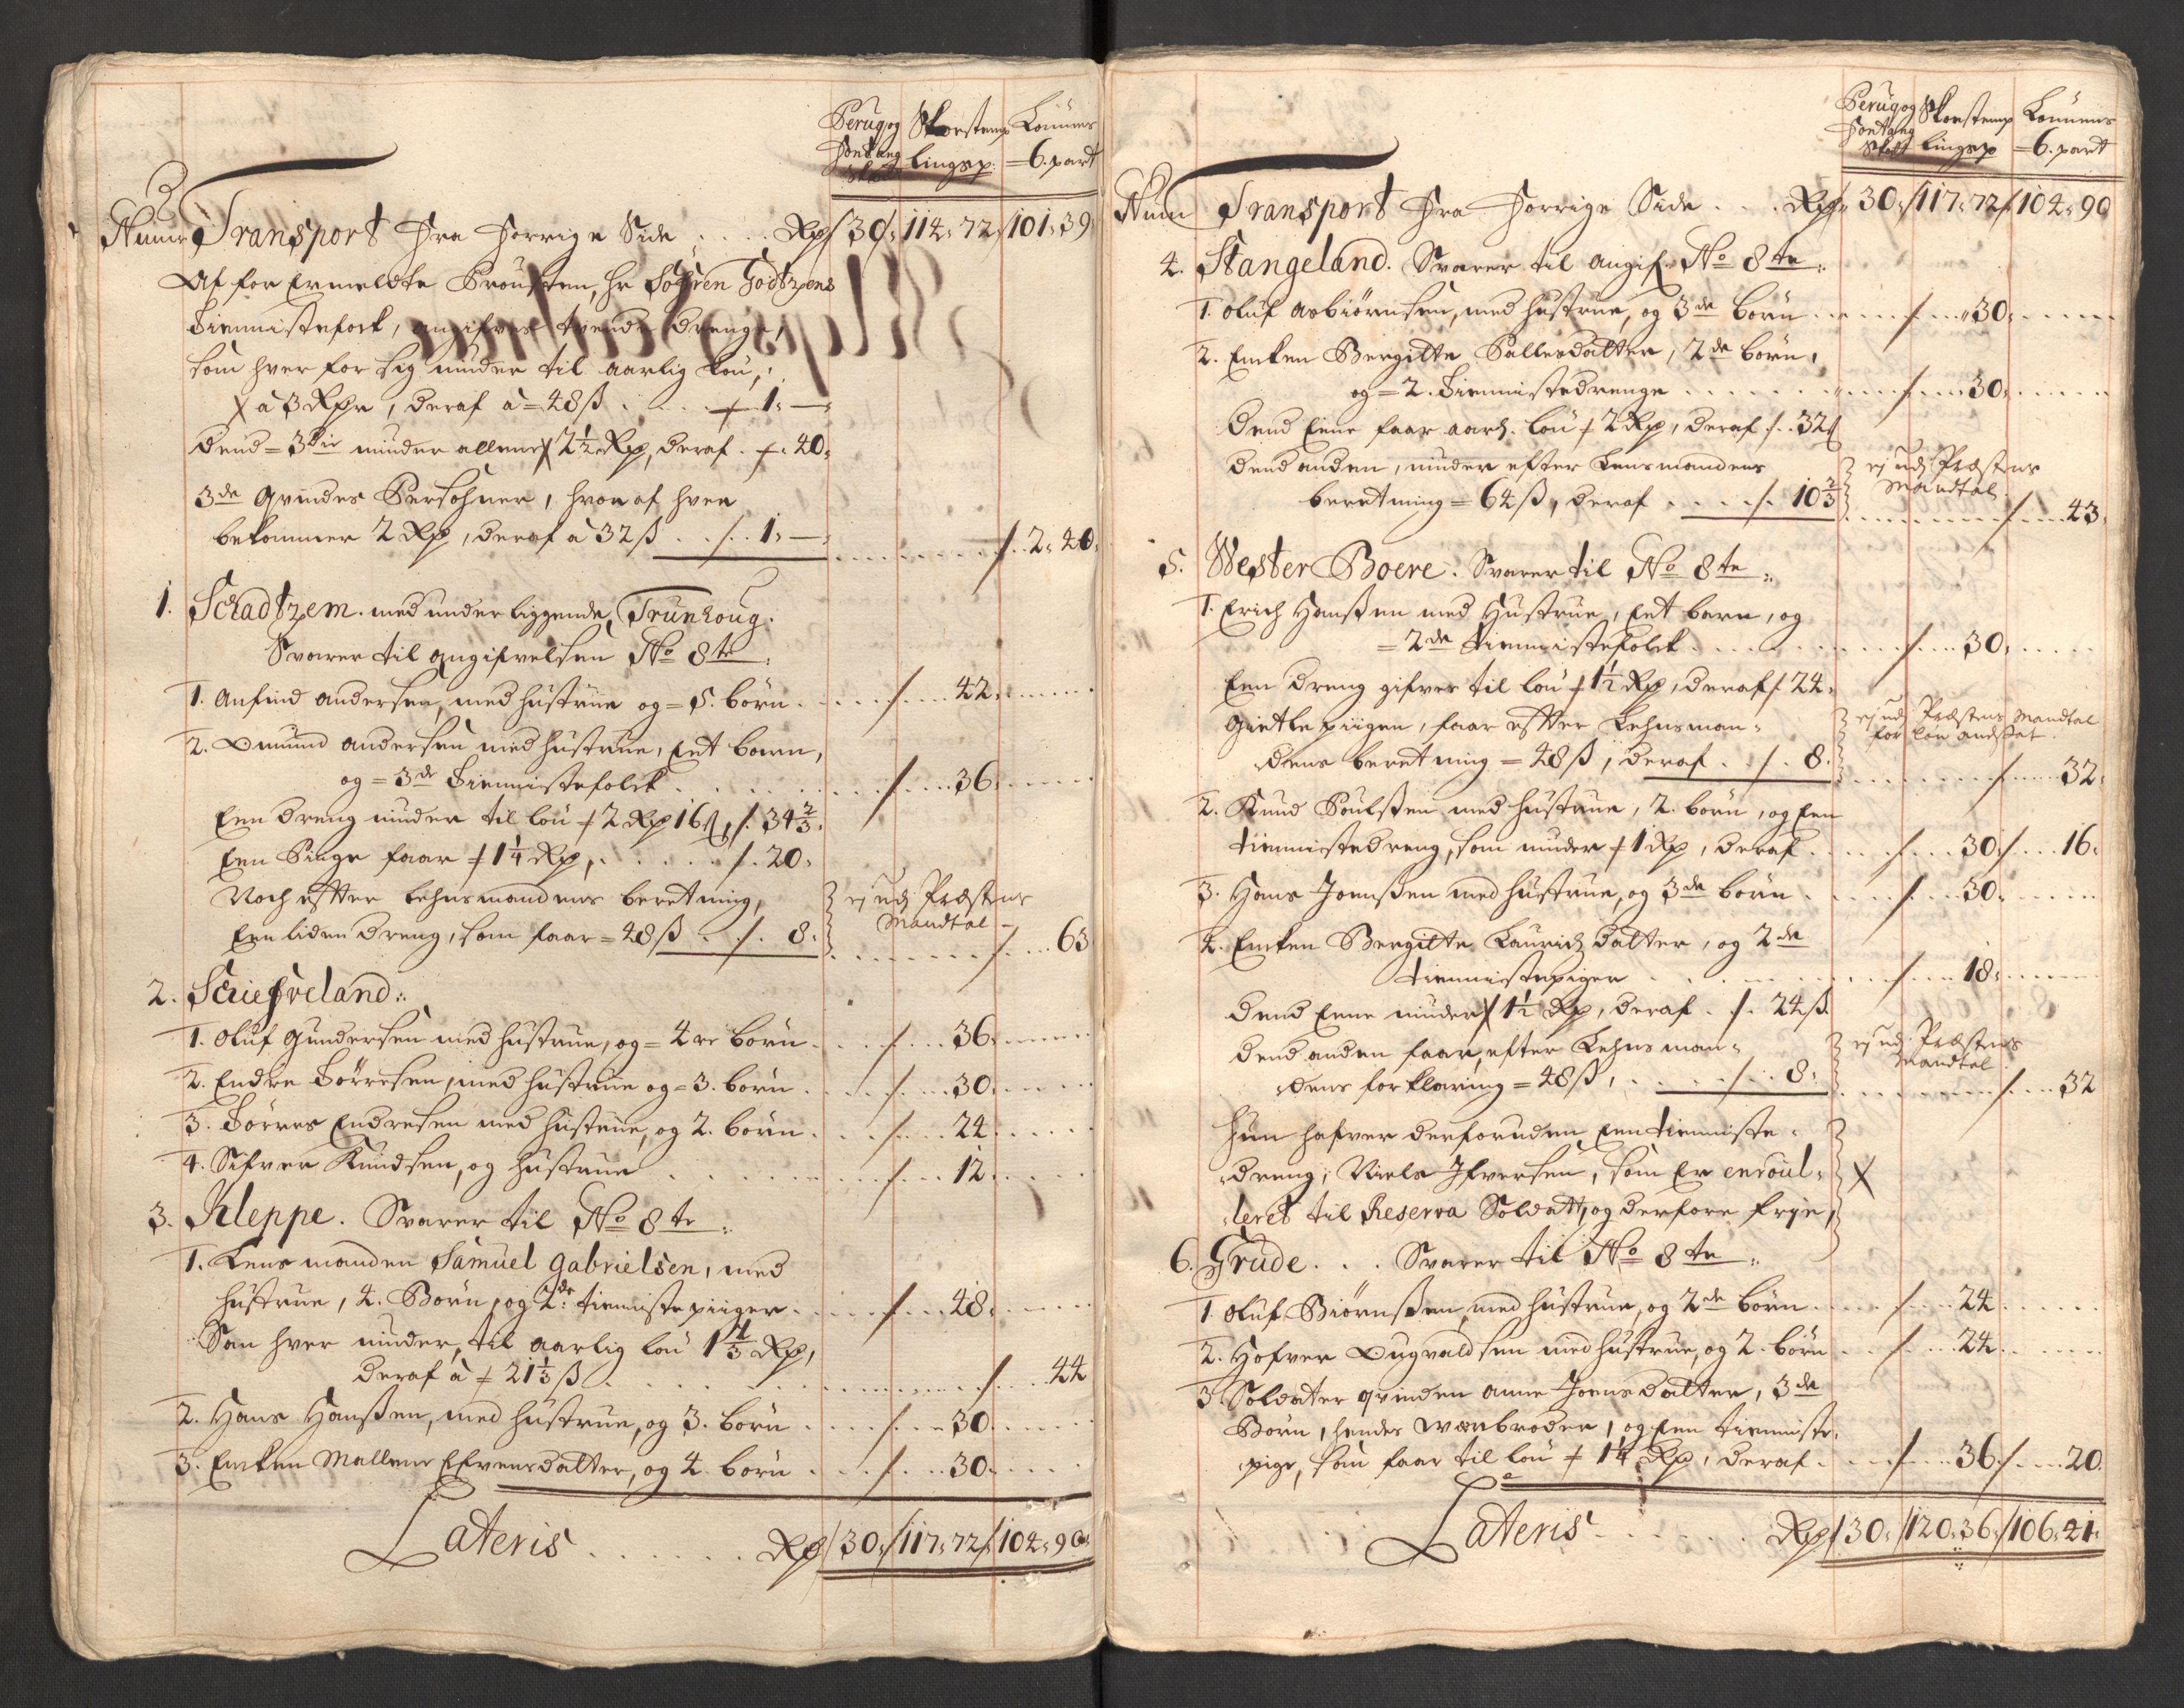 Perug og Skorstenp Lønnens
Fontang lingsp. =6. part
Skat
Numr Transport Fra Forrige Side . . . . Rp 30: 114: 72: 101: 39:
Af for Ermeldte Proùsten, Hr Søfren Godtzens
Tiennistefock, angifves tvende drenge,
som hver for sig ninder til aarlig lou,
à 3 Rpr, deraf à = 48 ß . . . . 1: —
dend = 3die ninder allene 2½ Rp, deraf . 40:
3de qvindes Persohner, hvoraf hver
bekommer 2 Rp, deraf à 32 ß . . /. . 1: — . . . . /. 2: 40:
1. Schadtzem. med underliggende, Trunhoug.
Svarer til angifvelsen No 8te:
1. Anfind Andersen, med hustrùe og = 5. børn . . . . /. . . . 42:
2. Omund Andersen med hustrùe, Eet barn,
og = 3de Tiennistefolck . . . . /. . . . 36:
Een dreng ninder til lou 2 Rp 16 ß, /. 34⅔:
Een Pinge faar 1¼ Rp, . . . . . /. 20:
Noch efter Lehnsmandens beretning, ej udj Præstens
Een liden dreng, som faar = 48 ß . /. 8: Mandtal . . . . /. . . 63
2. Schiefveland:
1. Oluf Gundersen med hustrue, og = 4re børn . . . . /. . . 36:
2. Endre Tørresen, med hustrùe og = 3. børn . . . . /. . . 30:
3. Tørres Endresen med hustrùe, og 2. børn . . . . /. . . 24
4. Sifver Knudsen, og hustrue . . . . /. . . 12
3. Kleppe. Svarer til No 8te:
1. Lensmanden Samuel Gabrielsen, med
hustrue, 4. Børn, og 2de tiennistepiiger . . . . /. . . 48:
Som hver ninder, til aarlig lou 1⅓ Rp,
deraf à 21⅓ ß . . . . /. . . 44
2. Hans Hanßen, med hustrue, og 3. børn . . . . /. . . 30
3. Encken Mallene Efvensdatter, og 4. børn . . . . /. . . 30
Lateris . . . . . . Rp 30: 117: 72: 104: 90:
Perug og Skorstenp Lønnens
Fontang lingsp =6. part
Skatt
Num Transport Fra Forrige Side . . . Rp 30: 117: 72: 104: 90
4. Stangeland. Svarer til angif. No 8te:
1. Oluf Asbiørnsen, med hustrue, og 3de børn . . . . /. . . 30:
2. Encken Bergitte Pallesdatter, 2de børn,
og = 2. Tiennistedrenge . . . . . . /. . . 30:
Dend Eene faar aarl. lou 2 Rp, deraf /. 32 ß
dend anden, ninder efter Lensmandens ej udj Præstens
beretning = 64 ß, deraf . . . . /. 10⅔ Mandtal. . . . . /. . . 43:
5. Wester Boere. Svarer til No 8te:
1. Erich Hanßen med Hustrue, Eet barn, og
= 2de tiennistefolck . . . . /. . . 30:
Een dreng gifves til lou 1½ Rp, deraf /. 24:
Gietle piigen, faar efter Lehnsman= ej udj Præstens Mandtal
dens beretning = 48 ß, deraf . /. 8: for lön andsat. . . . . /. . . 32:
2. Knud Poulßen med hustrue, 2. børn, og Een
tiennistedreng, som ninder 1 Rp, deraf . . . . /. . . 30: /. . . 16:
3. Hans Joenßen med hustrue, og 3de børn . . . . /. . . 30:
4. Encken Bergitte Lauridz datter, og 2de
tiennistepiger . . . . /. . . 18:
dend Eene ninder 1½ Rp, deraf . /. 24 ß
dend anden faar, efter Lehnsman= ej udj Præstens
dens forklaring = 48 ß, . . . . . /. . 8: Mandtal . . . . /. . . 32
Hun hafver derforuden Een tienniste=
dreng, Niels Ifversen, som Er enroul=
leret til Reserva Soldatt, og derfore frje,
6. Grude. . . Svarer til No 8te:
1. Oluf Biørnßen, med hustrue, og 2de børn . . . . /. . . 24
2. Hofver Ougvaldsen med hustrue, og 2. børn . . . /. . . 24
3. Soldater qvinden Anne Joensdatter, 3de
Børn, hendes Værbroder, og Een tienniste
pige, som faar til lou 1¼ Rp, deraf . . . . /. . . 36: /. . . 20.
Lateris . . . . . . Rp 30: 120: 36: 106: 41: